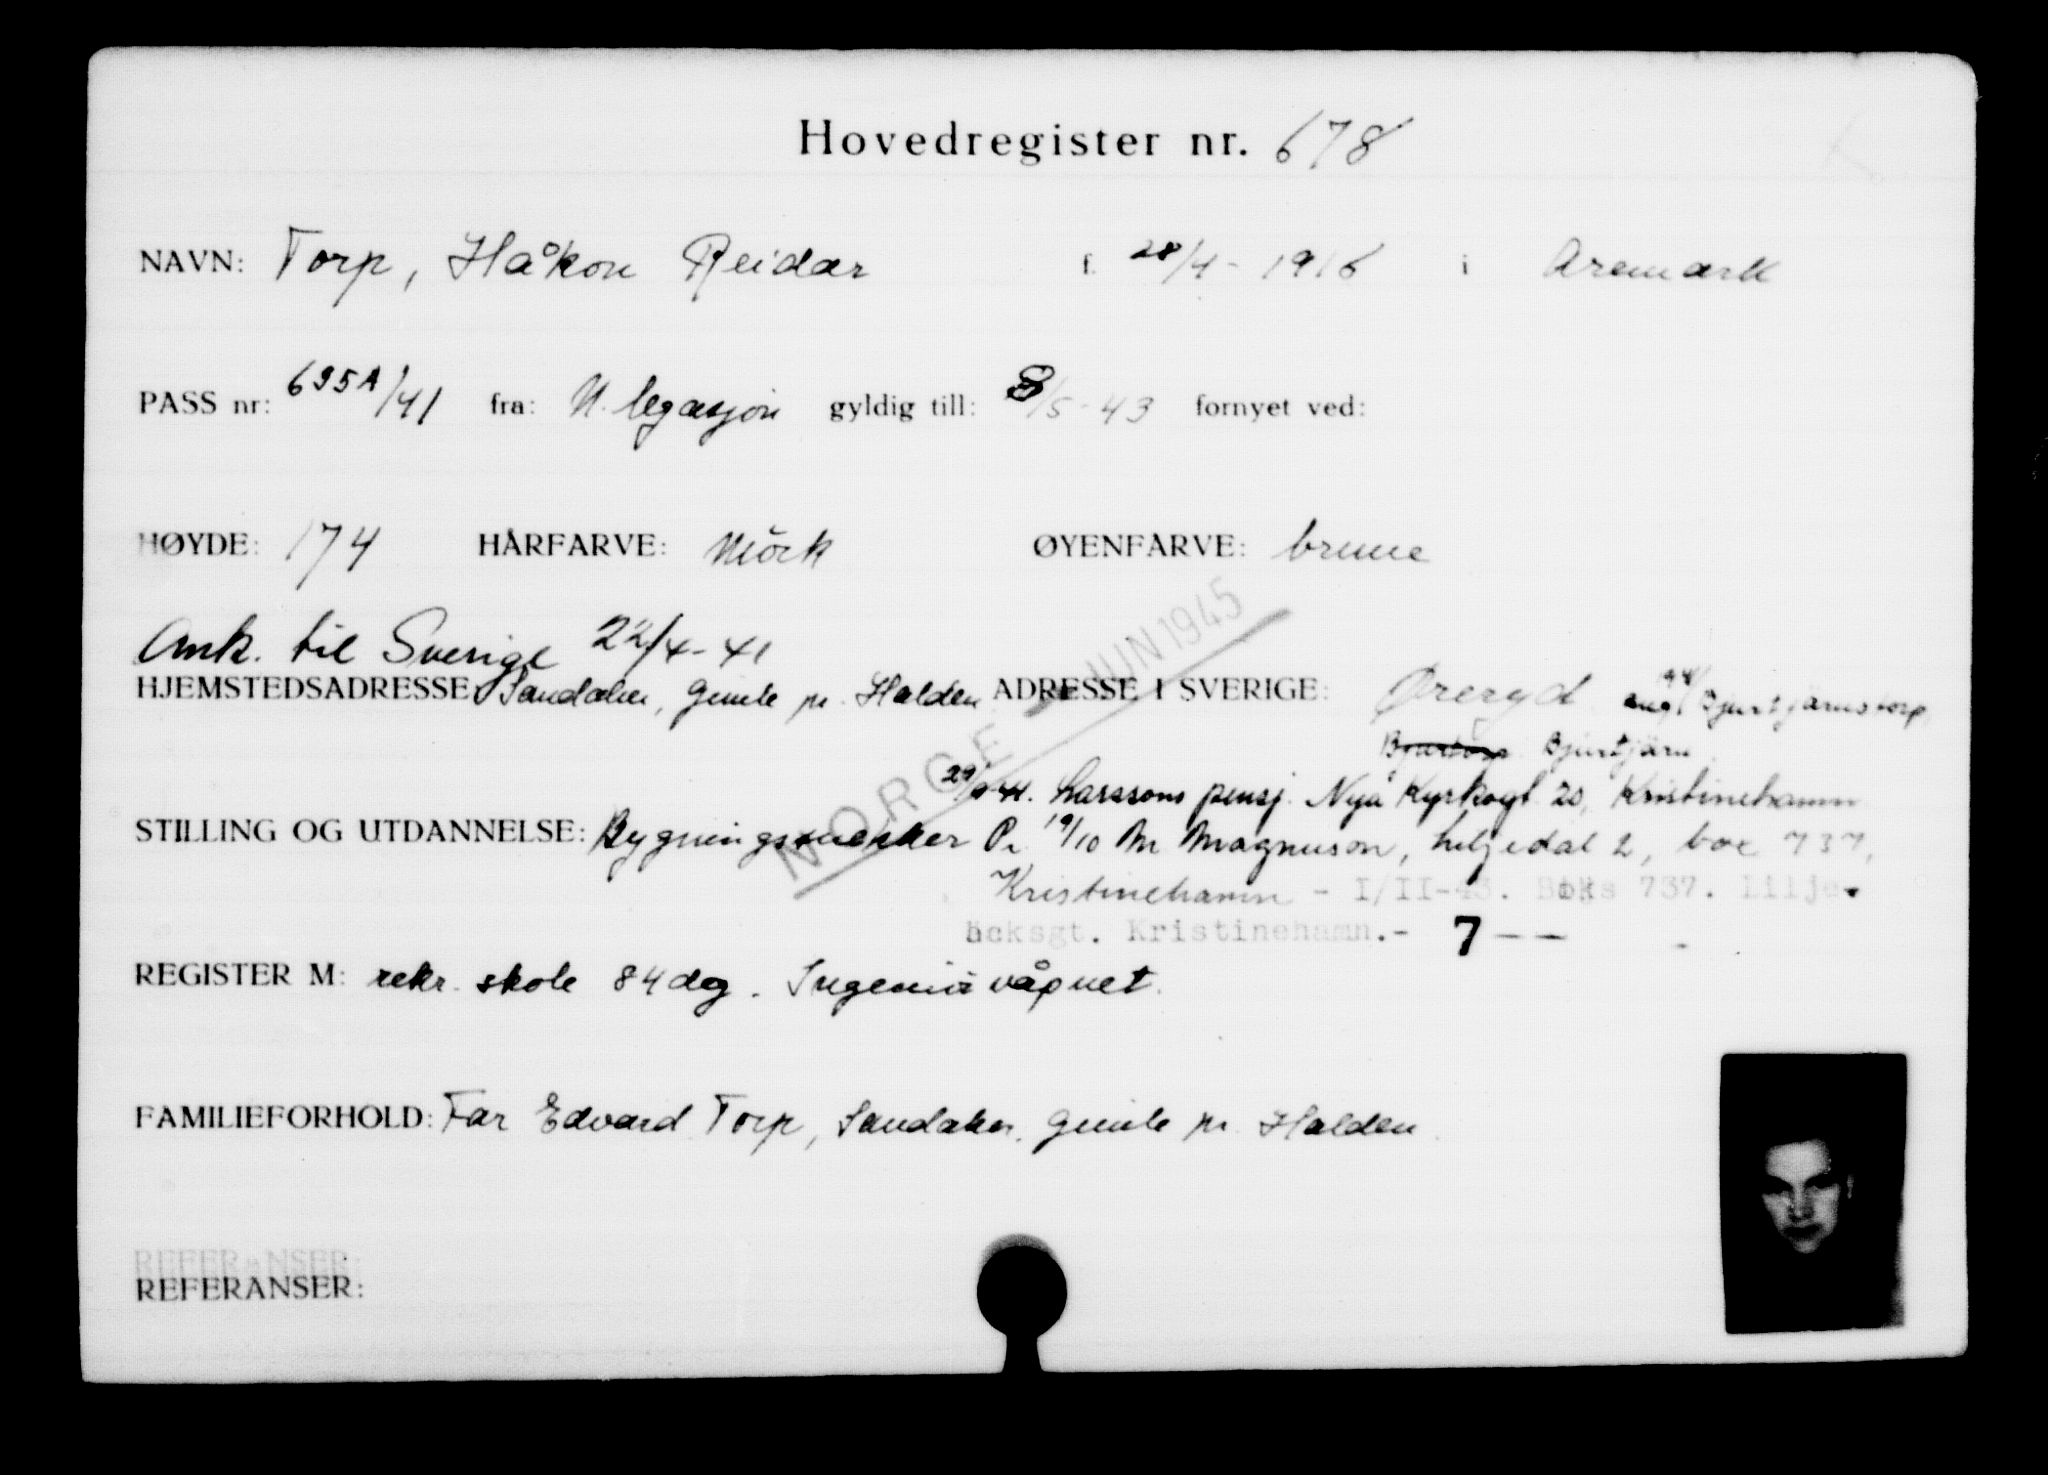 Hovedregister nr. 678
NAVN: Torp, Håkon Reidar f. 28/4-1916 i Aremark
PASS nr: 695A/41 fra: N. legasjon gyldig till: 8/5-43 fornyet ved:
HØYDE: 174 HÅRFARVE: Mörk ØYENFARVE: brune
Ank. til Sverige 22/4-41
HJEMSTEDSADRESSE: Sandaker, Gimle pr. Halden ADRESSE I SVERIGE: Øreryd Bjurtjärnstorp
Bjurtjärn
Larssons pensj. Nya Kyrkogt 20, Kristinehamn
STILLING OG UTDANNELSE: Bygningssnekker Pr. 19/10 M Magnuson, Liljedal 2, box 737,
Kristinehamn - I/II-43. Boks 737. Lilje-
bäcksgt. Kristinehamn.- 7 -- -
NORGE JUN 1945
REGISTER M: rekr. skole 84 dg. Ingeniörvåpnet.
FAMILIEFORHOLD: Far Edvard Torp, Sandaker, Gimle pr. Halden.
REFERANSER:
REFERANSER: